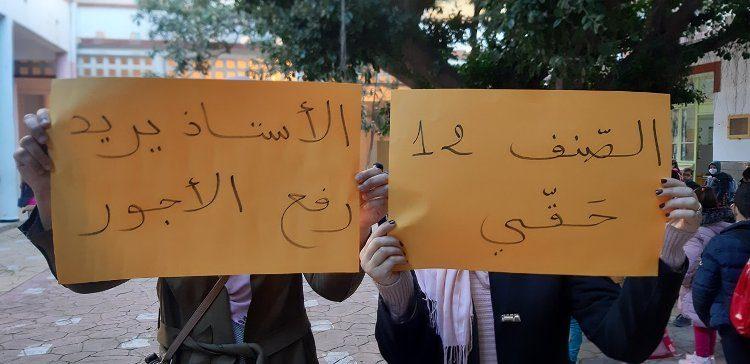 الصّنف 12
حَقّي
الأستاذ يريد
رفع الأجور